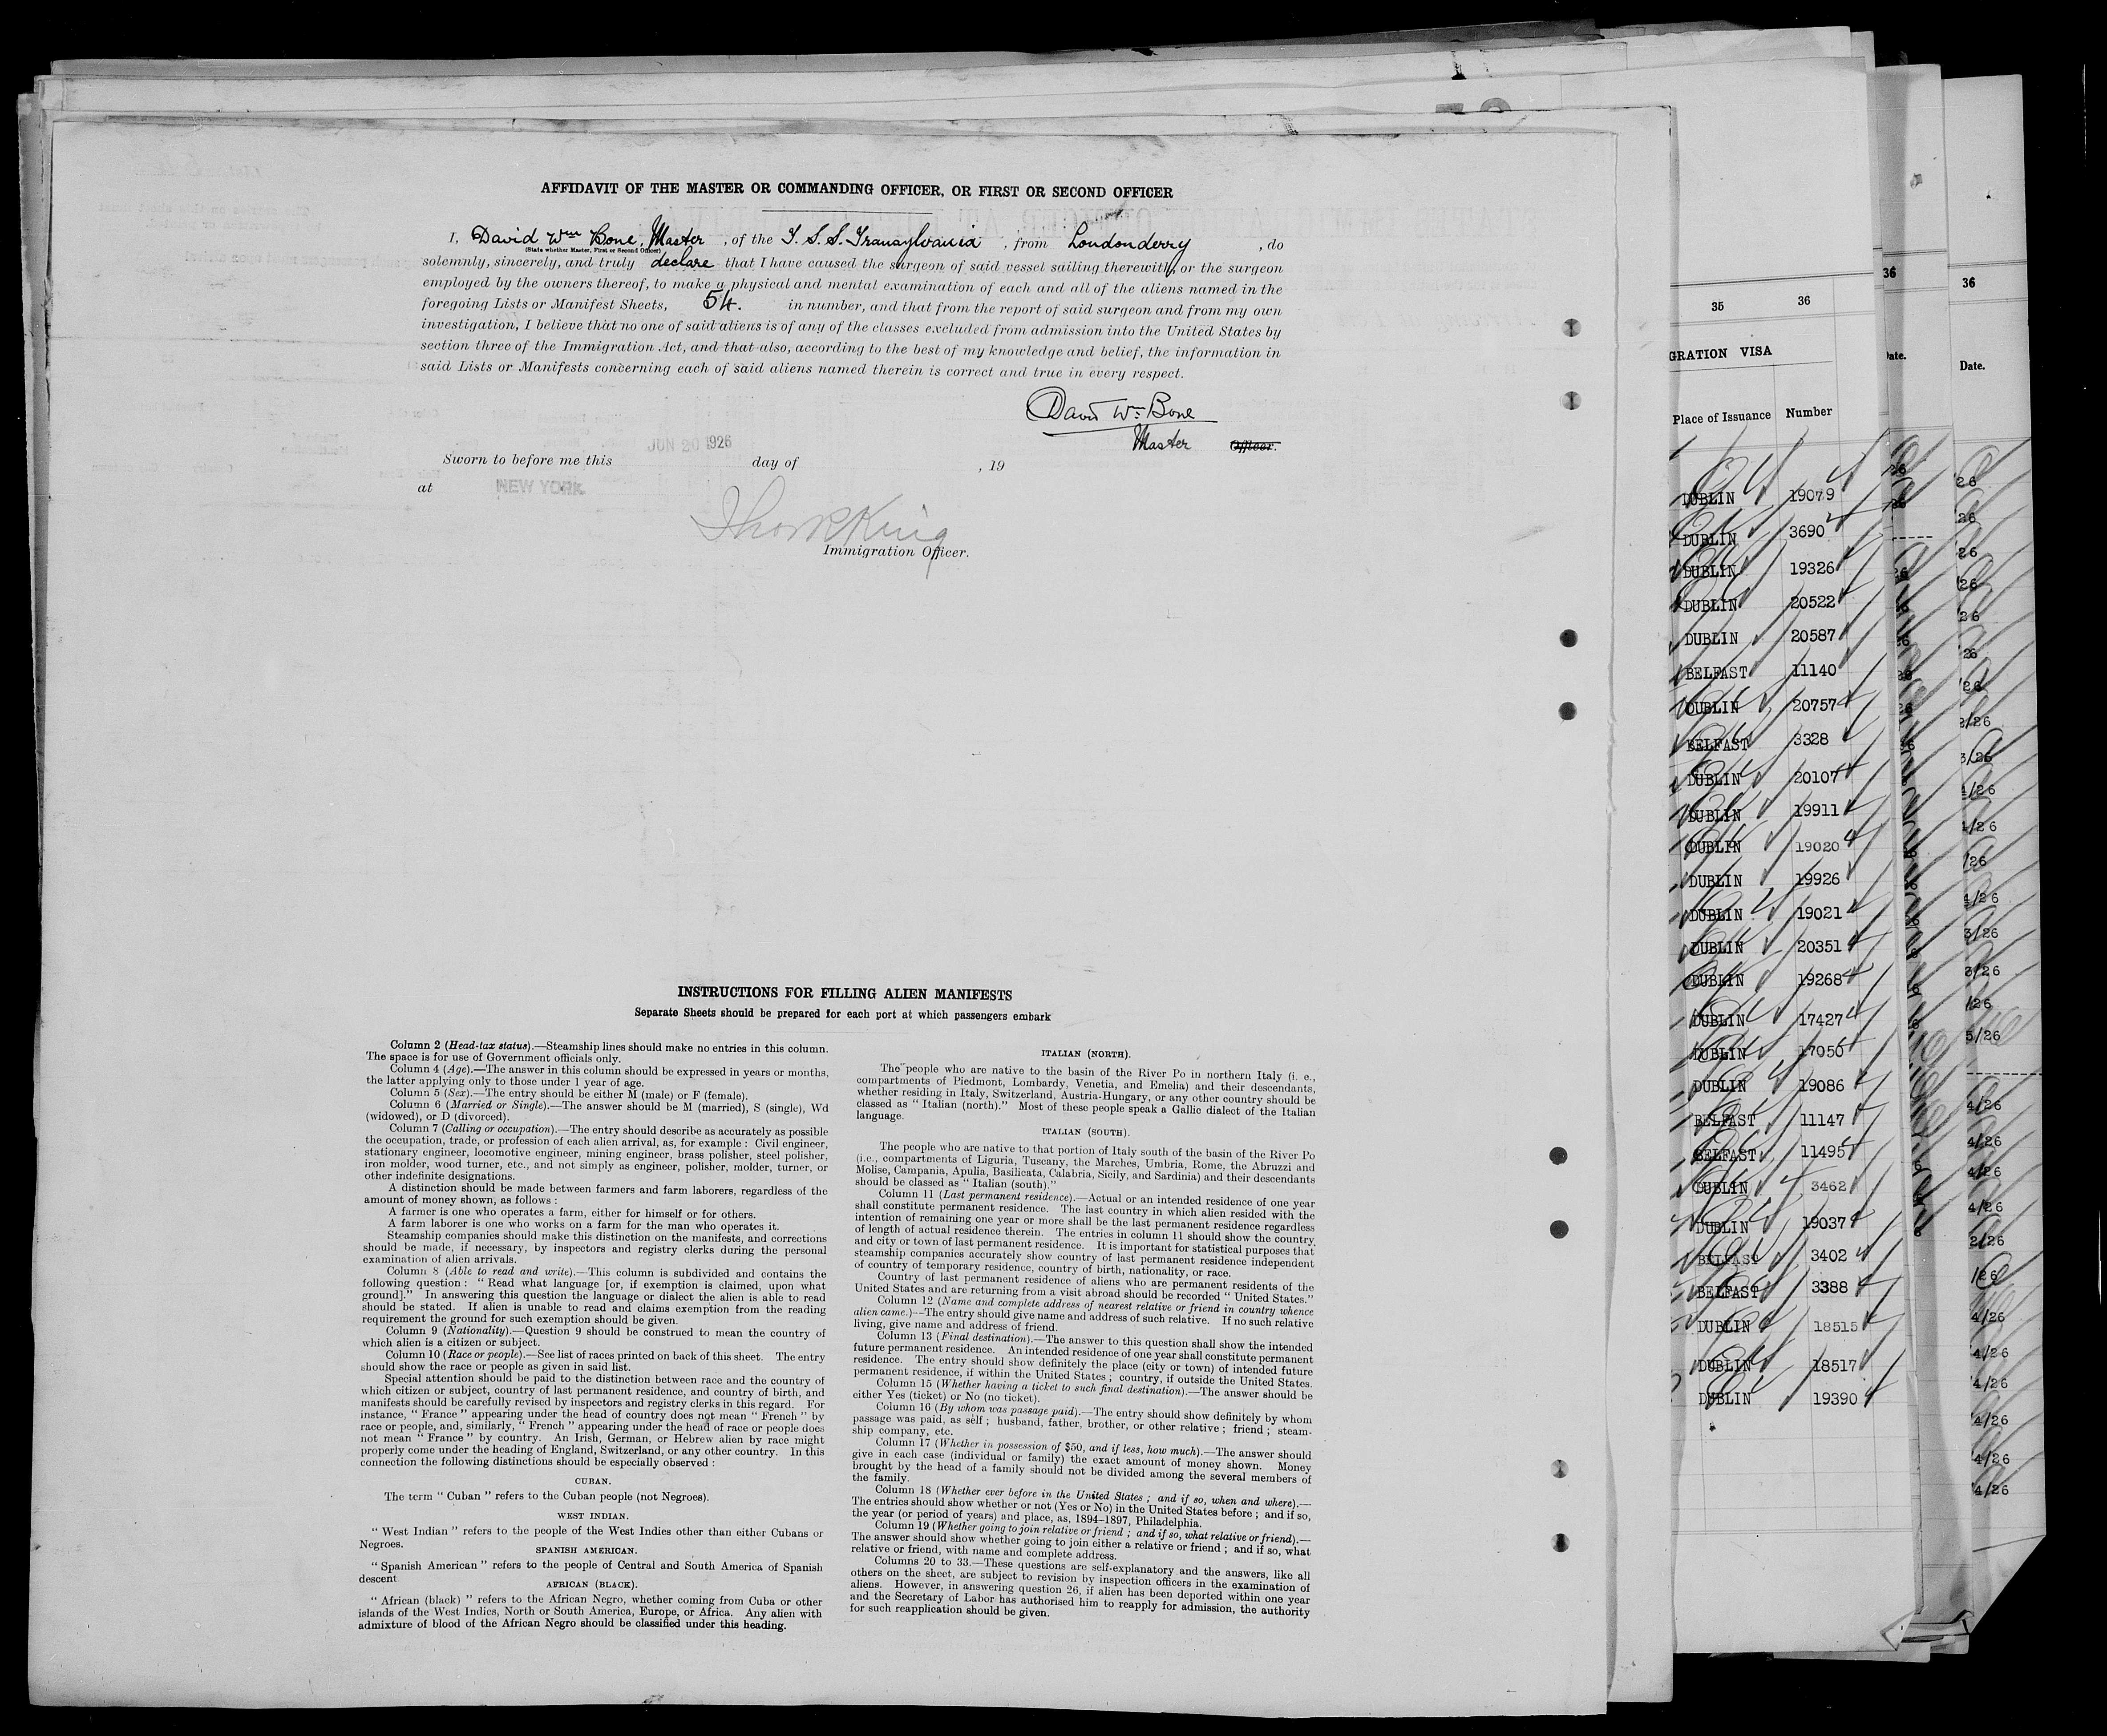 AFFIDAVIT OF THE MASTER OR COMMANDING OFFICER, OR FIRST OR SECOND OFFICER
I, David Wm Bone, Master , of the T. S. S. Transylvania , from Londonderry , do
(State whether Master, First or Second Officer)
solemnly, sincerely, and truly declare that I have caused the surgeon of said vessel sailing therewith, or the surgeon
employed by the owners thereof, to make a physical and mental examination of each and all of the aliens named in the
foregoing Lists or Manifest Sheets, 54. in number, and that from the report of said surgeon and from my own
investigation, I believe that no one of said aliens is of any of the classes excluded from admission into the United States by
section three of the Immigration Act, and that also, according to the best of my knowledge and belief, the information in
said Lists or Manifests concerning each of said aliens named therein is correct and true in every respect.
David Wm Bone
Master Officer.
JUN 20 1926
Sworn to before me this day of , 19
at NEW YORK
Immigration Officer.
INSTRUCTIONS FOR FILLING ALIEN MANIFESTS
Separate Sheets should be prepared for each port at which passengers embark
Column 2 (Head-tax status).—Steamship lines should make no entries in this column.
The space is for use of Government officials only.
Column 4 (Age).—The answer in this column should be expressed in years or months,
the latter applying only to those under 1 year of age.
Column 5 (Sex).—The entry should be either M (male) or F (female).
Column 6 (Married or Single).—The answer should be M (married), S (single), Wd
(widowed), or D (divorced).
Column 7 (Calling or occupation).—The entry should describe as accurately as possible
the occupation, trade, or profession of each alien arrival, as, for example : Civil engineer,
stationary engineer, locomotive engineer, mining engineer, brass polisher, steel polisher,
iron molder, wood turner, etc., and not simply as engineer, polisher, molder, turner, or
other indefinite designations.
A distinction should be made between farmers and farm laborers, regardless of the
amount of money shown, as follows :
A farmer is one who operates a farm, either for himself or for others.
A farm laborer is one who works on a farm for the man who operates it.
Steamship companies should make this distinction on the manifests, and corrections
should be made, if necessary, by inspectors and registry clerks during the personal
examination of alien arrivals.
Column 8 (Able to read and write).—This column is subdivided and contains the
following question : " Read what language [or, if exemption is claimed, upon what
ground]." In answering this question the language or dialect the alien is able to read
should be stated. If alien is unable to read and claims exemption from the reading
requirement the ground for such exemption should be given.
Column 9 (Nationality).—Question 9 should be construed to mean the country of
which alien is a citizen or subject.
Column 10 (Race or people).—See list of races printed on back of this sheet. The entry
should show the race or people as given in said list.
Special attention should be paid to the distinction between race and the country of
which citizen or subject, country of last permanent residence, and country of birth, and
manifests should be carefully revised by inspectors and registry clerks in this regard. For
instance, " France " appearing under the head of country does not mean " French " by
race or people, and, similarly, " French " appearing under the head of race or people does
not mean " France " by country. An Irish, German, or Hebrew alien by race might
properly come under the heading of England, Switzerland, or any other country. In this
connection the following distinctions should be especially observed :
CUBAN.
The term " Cuban " refers to the Cuban people (not Negroes).
WEST INDIAN.
" West Indian " refers to the people of the West Indies other than either Cubans or
Negroes.
SPANISH AMERICAN.
" Spanish American " refers to the people of Central and South America of Spanish
descent
AFRICAN (BLACK).
" African (black) " refers to the African Negro, whether coming from Cuba or other
islands of the West Indies, North or South America, Europe, or Africa. Any alien with
admixture of blood of the African Negro should be classified under this heading.
ITALIAN (NORTH).
The people who are native to the basin of the River Po in northern Italy (i. e.,
compartments of Piedmont, Lombardy, Venetia, and Emelia) and their descendants,
whether residing in Italy, Switzerland, Austria-Hungary, or any other country should be
classed as " Italian (north)." Most of these people speak a Gallic dialect of the Italian
language.
ITALIAN (SOUTH).
The people who are native to that portion of Italy south of the basin of the River Po
(i.e., compartments of Liguria, Tuscany, the Marches, Umbria, Rome, the Abruzzi and
Molise, Campania, Apulia, Basilicata, Calabria, Sicily, and Sardinia) and their descendants
should be classed as " Italian (south)."
Column 11 (Last permanent residence).—Actual or an intended residence of one year
shall constitute permanent residence. The last country in which alien resided with the
intention of remaining one year or more shall be the last permanent residence regardless
of length of actual residence therein. The entries in column 11 should show the country
and city or town of last permanent residence. It is important for statistical purposes that
steamship companies accurately show country of last permanent residence independent
of country of temporary residence, country of birth, nationality, or race.
Country of last permanent residence of aliens who are permanent residents of the
United States and are returning from a visit abroad should be recorded " United States."
Column 12 (Name and complete address of nearest relative or friend in country whence
alien came.)—The entry should give name and address of such relative. If no such relative
living, give name and address of friend.
Column 13 (Final destination).—The answer to this question shall show the intended
future permanent residence. An intended residence of one year shall constitute permanent
residence. The entry should show definitely the place (city or town) of intended future
permanent residence, if within the United States ; country, if outside the United States.
Column 15 (Whether having a ticket to such final destination).—The answer should be
either Yes (ticket) or No (no ticket).
Column 16 (By whom was passage paid).—The entry should show definitely by whom
passage was paid, as self ; husband, father, brother, or other relative ; friend ; steam-
ship company, etc.
Column 17 (Whether in possession of $50, and if less, how much).—The answer should
give in each case (individual or family) the exact amount of money shown. Money
brought by the head of a family should not be divided among the several members of
the family.
Column 18 (Whether ever before in the United States ; and if so, when and where).—
The entries should show whether or not (Yes or No) in the United States before ; and if so,
the year (or period of years) and place, as, 1894-1897, Philadelphia.
Column 19 (Whether going to join relative or friend ; and if so, what relative or friend).—
The answer should show whether going to join either a relative or friend ; and if so, what
relative or friend, with name and complete address.
Columns 20 to 33.—These questions are self-explanatory and the answers, like all
others on the sheet, are subject to revision by inspection officers in the examination of
aliens. However, in answering question 26, if alien has been deported within one year
and the Secretary of Labor has authorised him to reapply for admission, the authority
for such reapplication should be given.
35 36
GRATION VISA
Place of Issuance Number
DUBLIN 19079
DUBLIN 3690
DUBLIN 19326
DUBLIN 20522
DUBLIN 20587
BELFAST 11140
DUBLIN 20757
BELFAST 3328
DUBLIN 20107
DUBLIN 19911
DUBLIN 19020
DUBLIN 19926
DUBLIN 19021
DUBLIN 20351
DUBLIN 19268
DUBLIN 17427
DUBLIN 17050
DUBLIN 19086
BELFAST 11147
BELFAST 11495
DUBLIN 3462
DUBLIN 19037
BELFAST 3402
BELFAST 3388
DUBLIN 18515
DUBLIN 18517
DUBLIN 19390
36
Date.
36
Date.